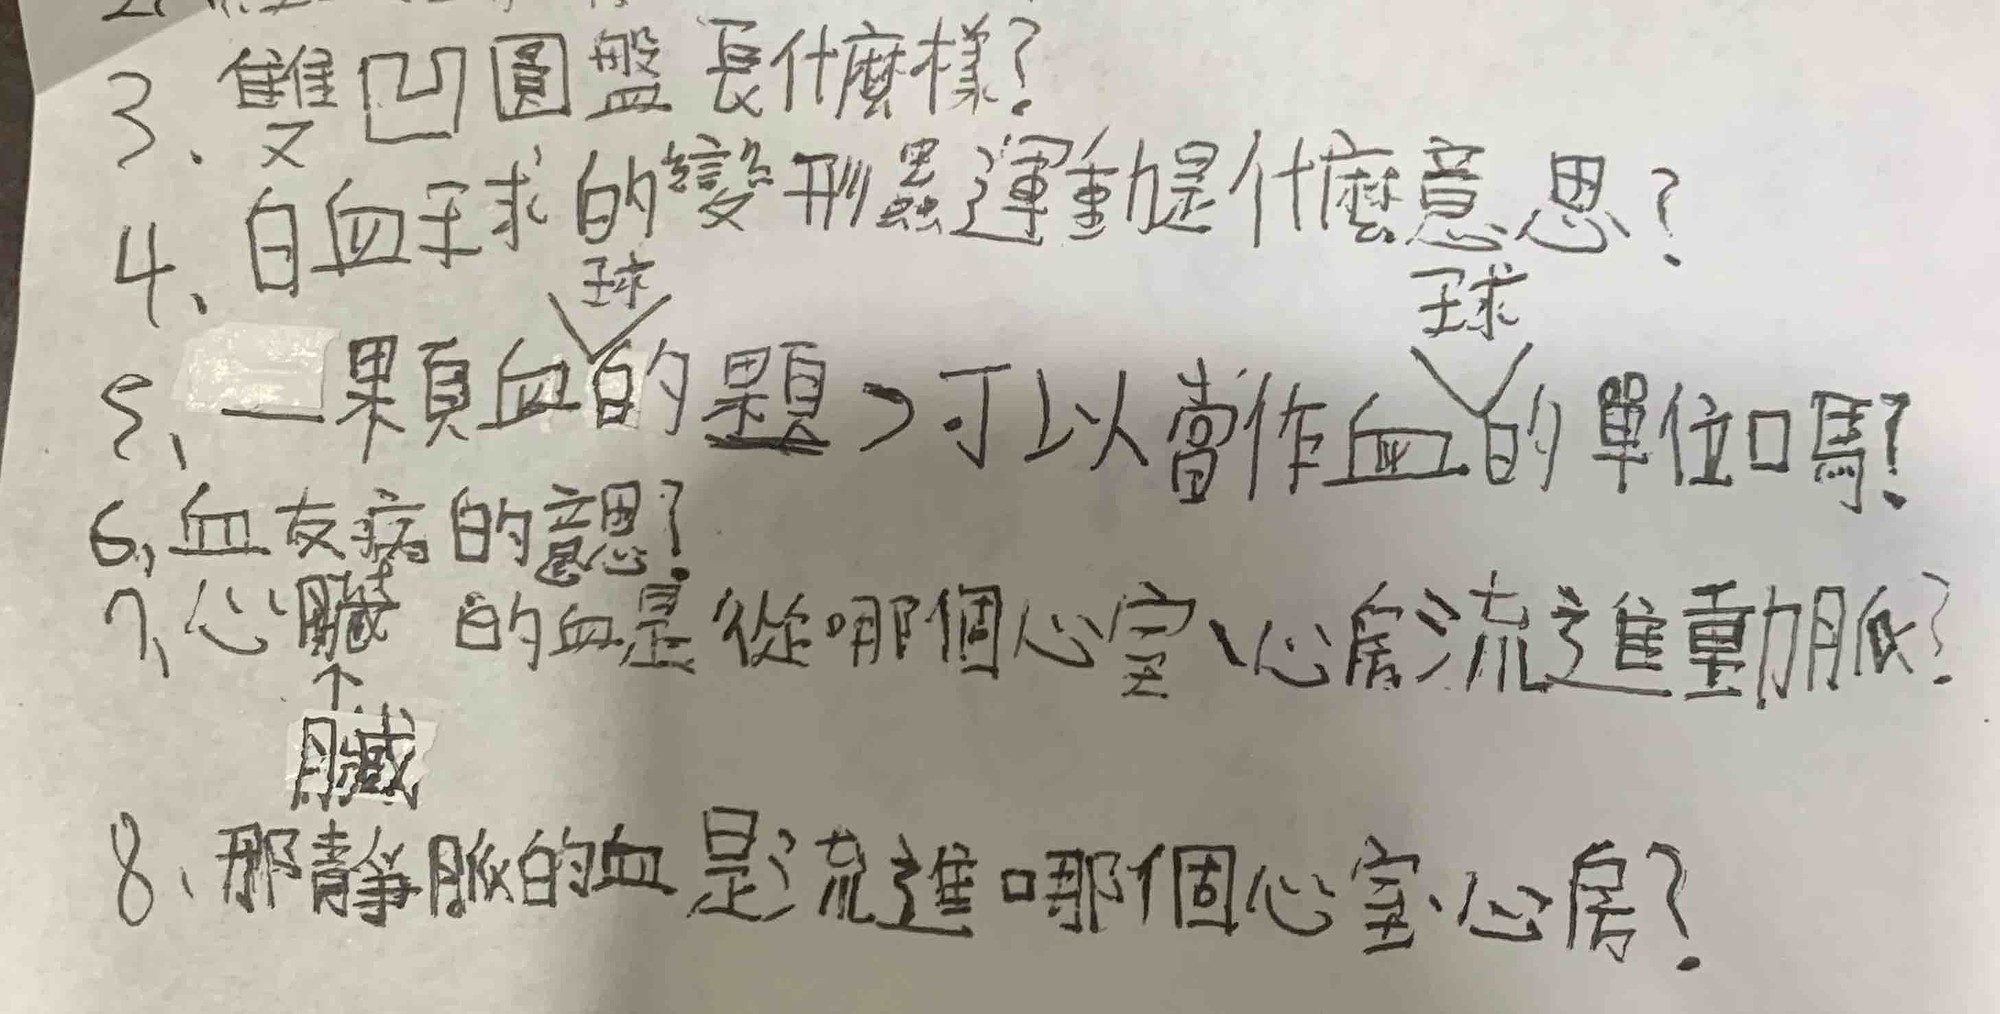 3、雙凹圓盤長什麼樣?
4、白血球的變形蟲運動是什麼意思?
球 球
5、一顆血的顆,可以當作血的單位嗎?
6、血友病的意思?
7、心臟的血是從哪個心室、心房流進動脈?
↑
臟
8、那靜脈的血是流進哪個心室、心房?